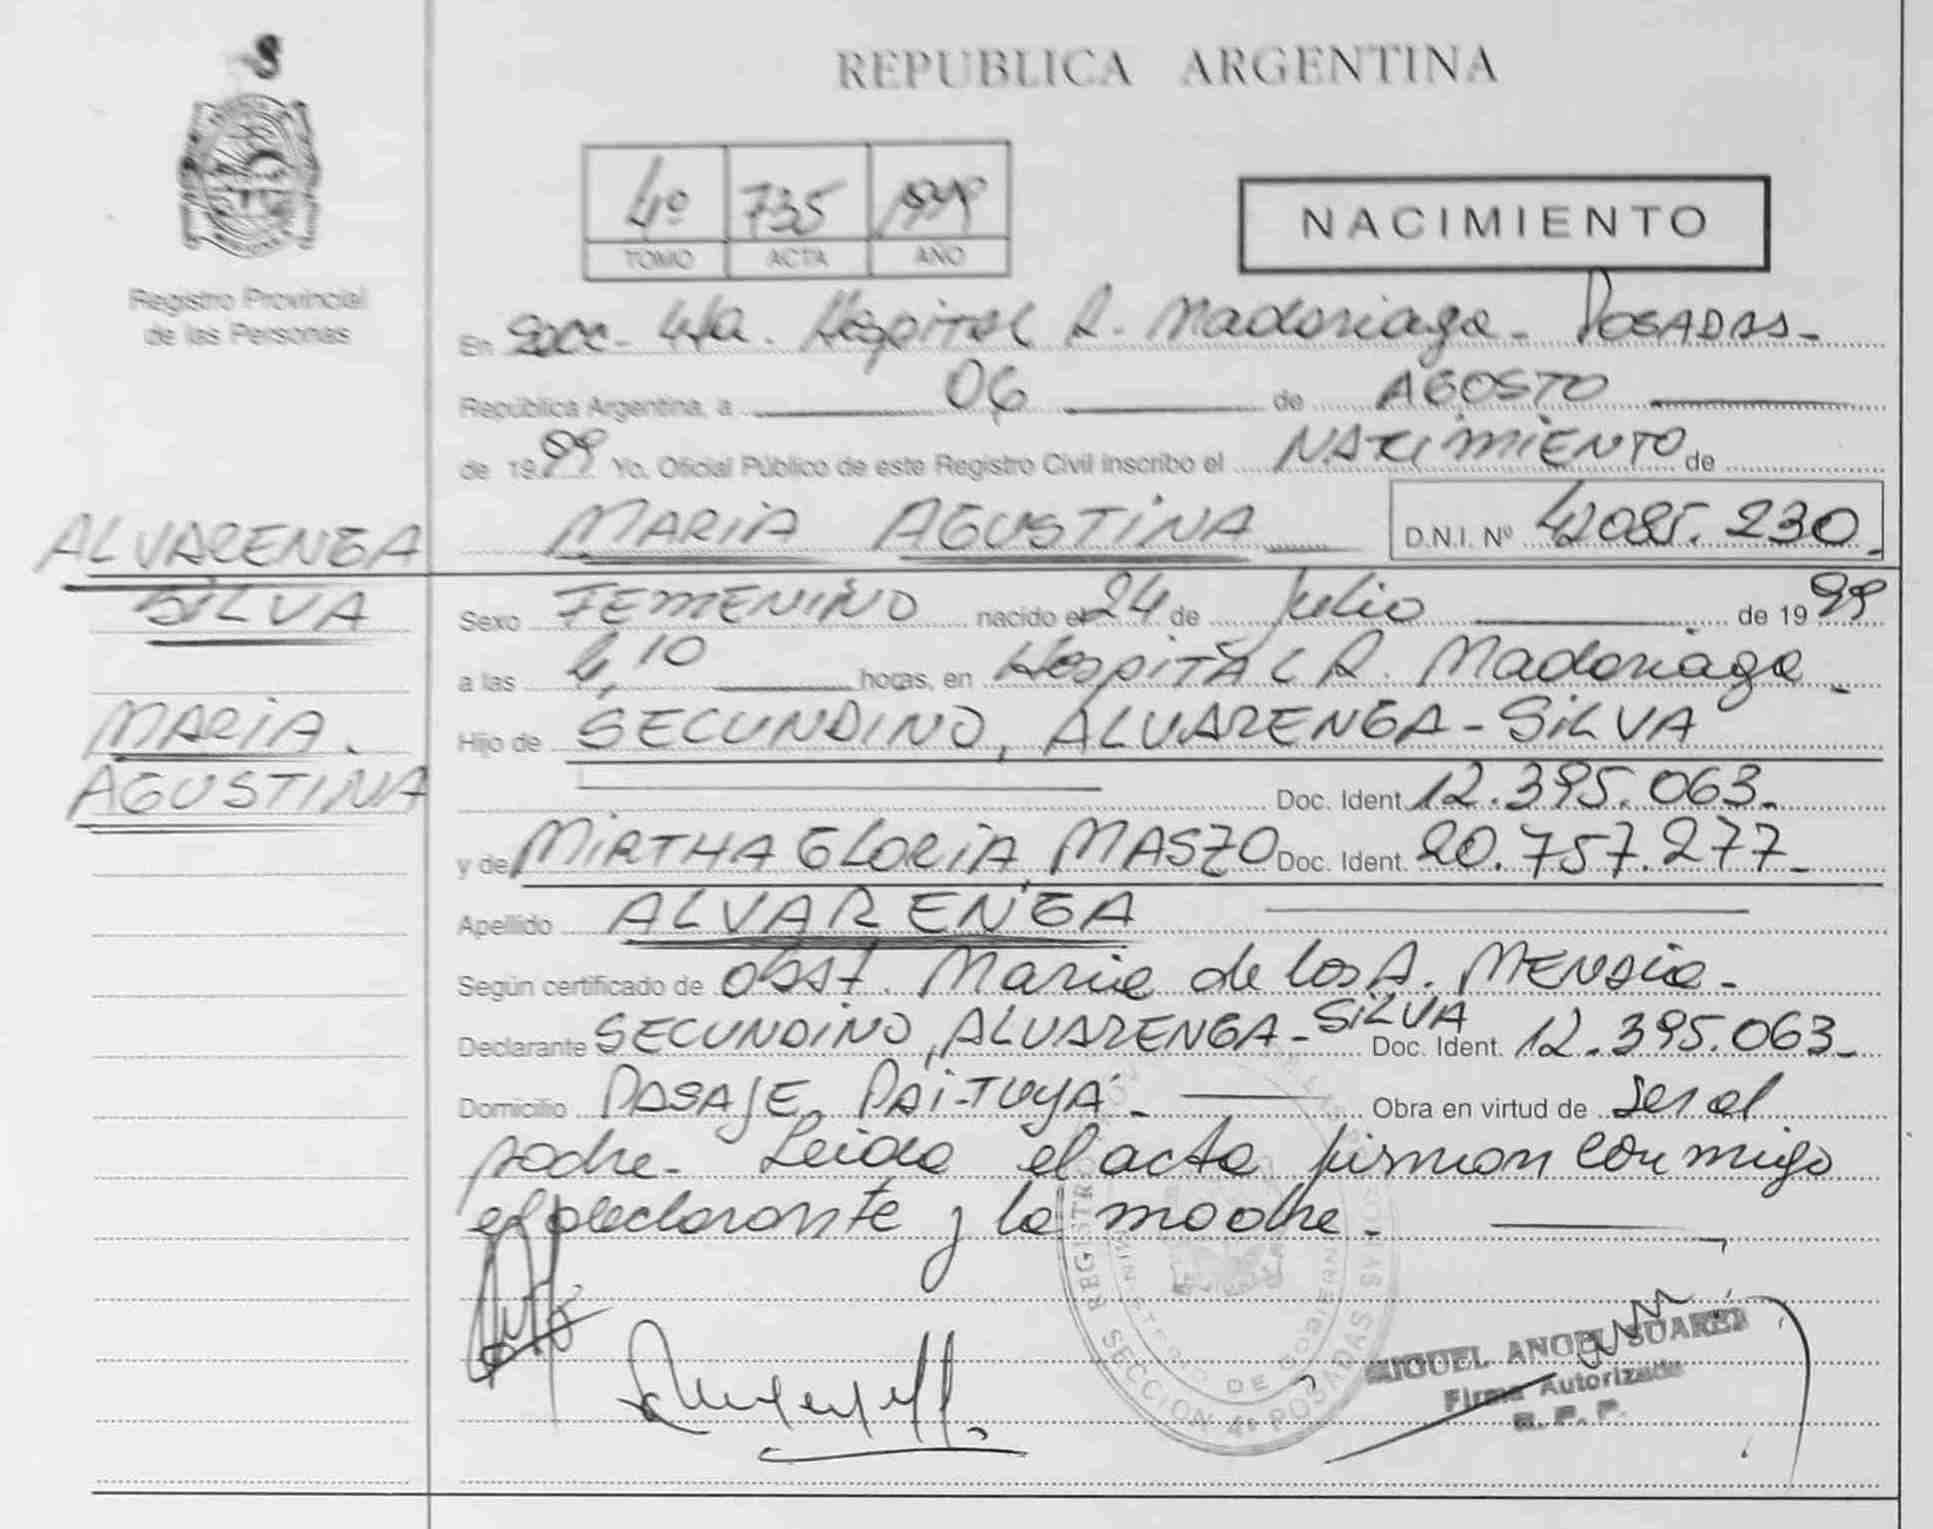 REPUBLICA ARGENTINA
4º 735 1999
TOMO ACTA AÑO
NACIMIENTO
Registro Provincial
de las Personas
En Secc. 4ta. Hospital R. Madariaga - POSADAS -
República Argentina, a 06 de AGOSTO
de 1999 Yo, Oficial Público de este Registro Civil inscribo el NACIMIENTO de
MARIA AGUSTINA D.N.I. Nº 42085.230.
ALVARENGA
SILVA
MARIA.
AGUSTINA
Sexo FEMENINO nacido el 24 de Julio de 1999
a las 4,10 horas, en Hospital R. Madariaga -
Hijo de SECUNDINO, ALVARENGA - SILVA
Doc. Ident 12.395.063.-
y de MIRTHA GLORIA MASZO Doc. Ident. 20.757.277.-
Apellido ALVARENGA
Según certificado de obst. Maria de los A. MENDIE -
Declarante SECUNDINO, ALVARENGA - SILVA Doc. Ident. 12.395.063.-
Domicilio PASAJE PAI-TUYÁ - Obra en virtud de ser el
padre - Leida el acta firman conmigo
el declarante y la madre.
REGISTR
MINISTERIO DE GOBIERN
SECCION 4ª POSADAS
MIGUEL ANGEL SUAREZ
Firma Autorizada
R. P. P.